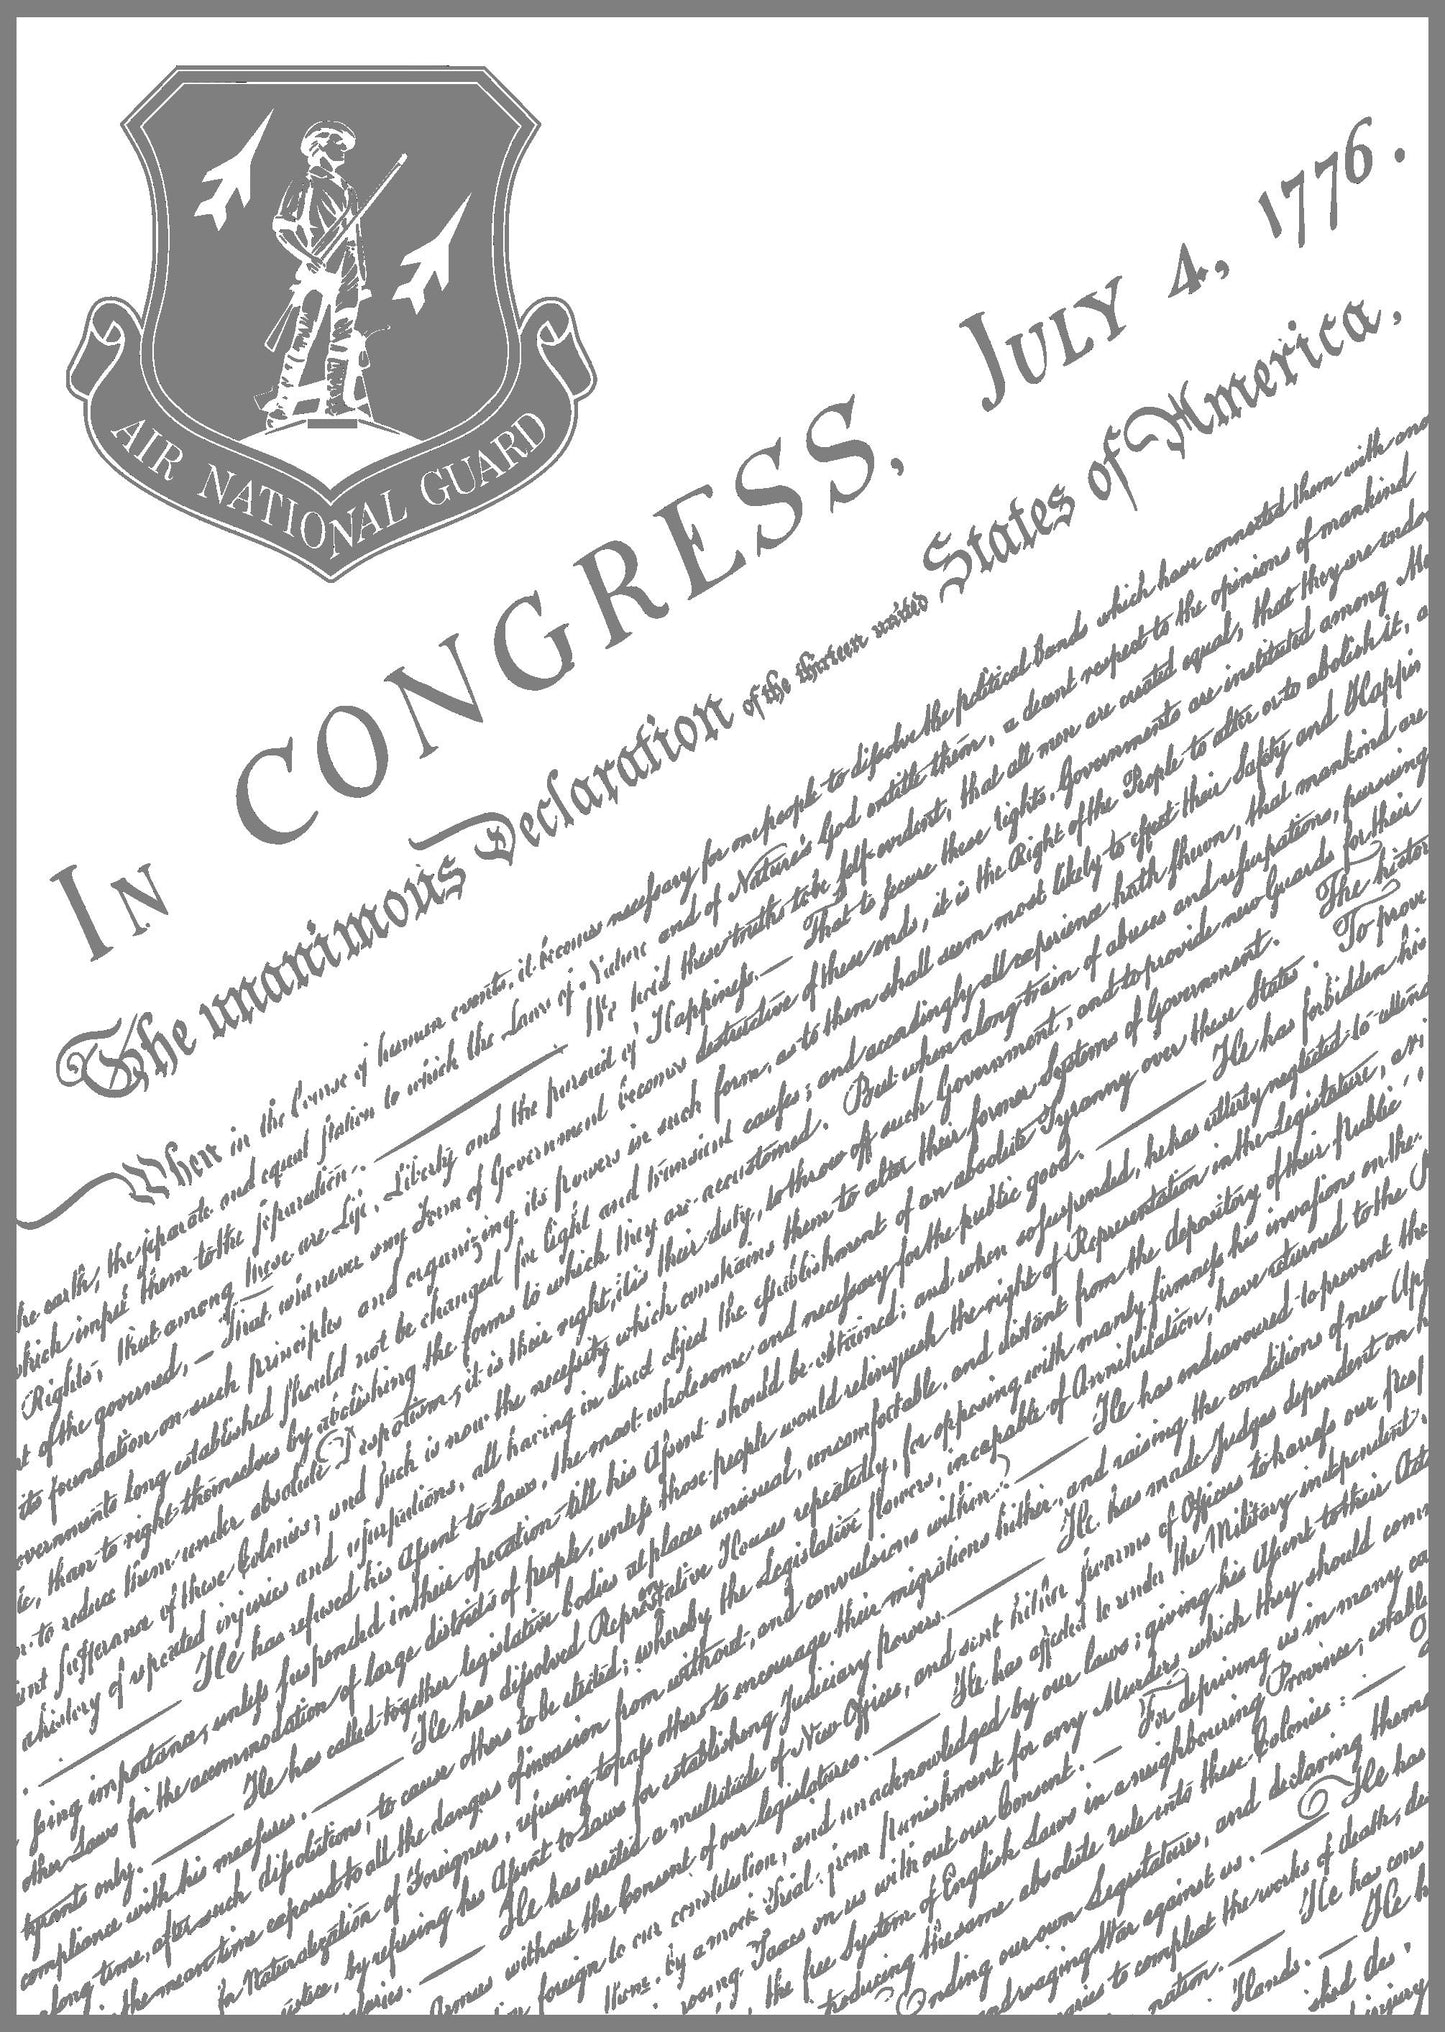 AIR NATIONAL GUARD
IN CONGRESS, JULY 4, 1776.
The unanimous Declaration of the thirteen united States of America,
When in the Course of human events, it becomes necessary for one people to dissolve the political bands which have connected them with ano
he earth, the separate and equal station to which the Laws of Nature and of Nature's God entitle them, a decent respect to the opinions of mankind
which impel them to the separation. We hold these truths to be self-evident, that all men are created equal, that they are endo
Rights, that among these are Life, Liberty and the pursuit of Happiness.— That to secure these rights, Governments are instituted among Me
nt of the governed, — That whenever any Form of Government becomes destructive of these ends, it is the Right of the People to alter or to abolish it, a
its foundation on such principles and organizing its powers in such form, as to them shall seem most likely to effect their Safety and Happin
overnments long established should not be changed for light and transient causes; and accordingly all experience hath shewn, that mankind are
le, than to right themselves by abolishing the forms to which they are accustomed. But when a long train of abuses and usurpations, pursuing
n to reduce them under absolute Despotism, it is their right, it is their duty, to throw off such Government, and to provide new Guards for their
ent sufferance of these Colonies; and such is now the necessity which constrains them to alter their former Systems of Government. The histor
a history of repeated injuries and usurpations, all having in direct object the establishment of an absolute Tyranny over these States. To prove
He has refused his Assent to Laws, the most wholesome and necessary for the public good. He has forbidden his
sing importance, unless suspended in their operation till his Assent should be obtained; and when so suspended, he has utterly neglected to attend
other Laws for the accommodation of large districts of people, unless those people would relinquish the right of Representation in the Legislature, a ri
tyrants only. He has called together legislative bodies at places unusual, uncomfortable, and distant from the depository of their Public
compliance with his measures. He has dissolved Representative Houses repeatedly, for opposing with manly firmness his invasions on the
long time, after such dissolutions, to cause others to be elected; whereby the Legislative Powers, incapable of Annihilation, have returned to the P
in the mean time exposed to all the dangers of invasion from without, and convulsions within. He has endeavoured to prevent the
in Naturalization of Foreigners, refusing to pass others to encourage their migrations hither, and raising the conditions of new App
ustice, by refusing his Assent to Laws for establishing Judiciary powers. He has made Judges dependent on h
laries. He has erected a multitude of New Offices, and sent hither swarms of Officers to harrass our peop
Armies without the Consent of our legislatures. He has affected to render the Military independent
n foreign to our constitution, and unacknowledged by our laws; giving his Assent to their Acts
them, by a mock Trial, from Punishment for any Murders which they should comm
osing Taxes on us without our Consent: For depriving us in many ca
the free System of English Laws in a neighbouring Province, establis
troducing the same absolute rule into these Colonies:
ending our own Legislatures, and declaring thems
and waging War against us. He has
naries to compleat the works of death, de
nation. He has cons
Hands. He h